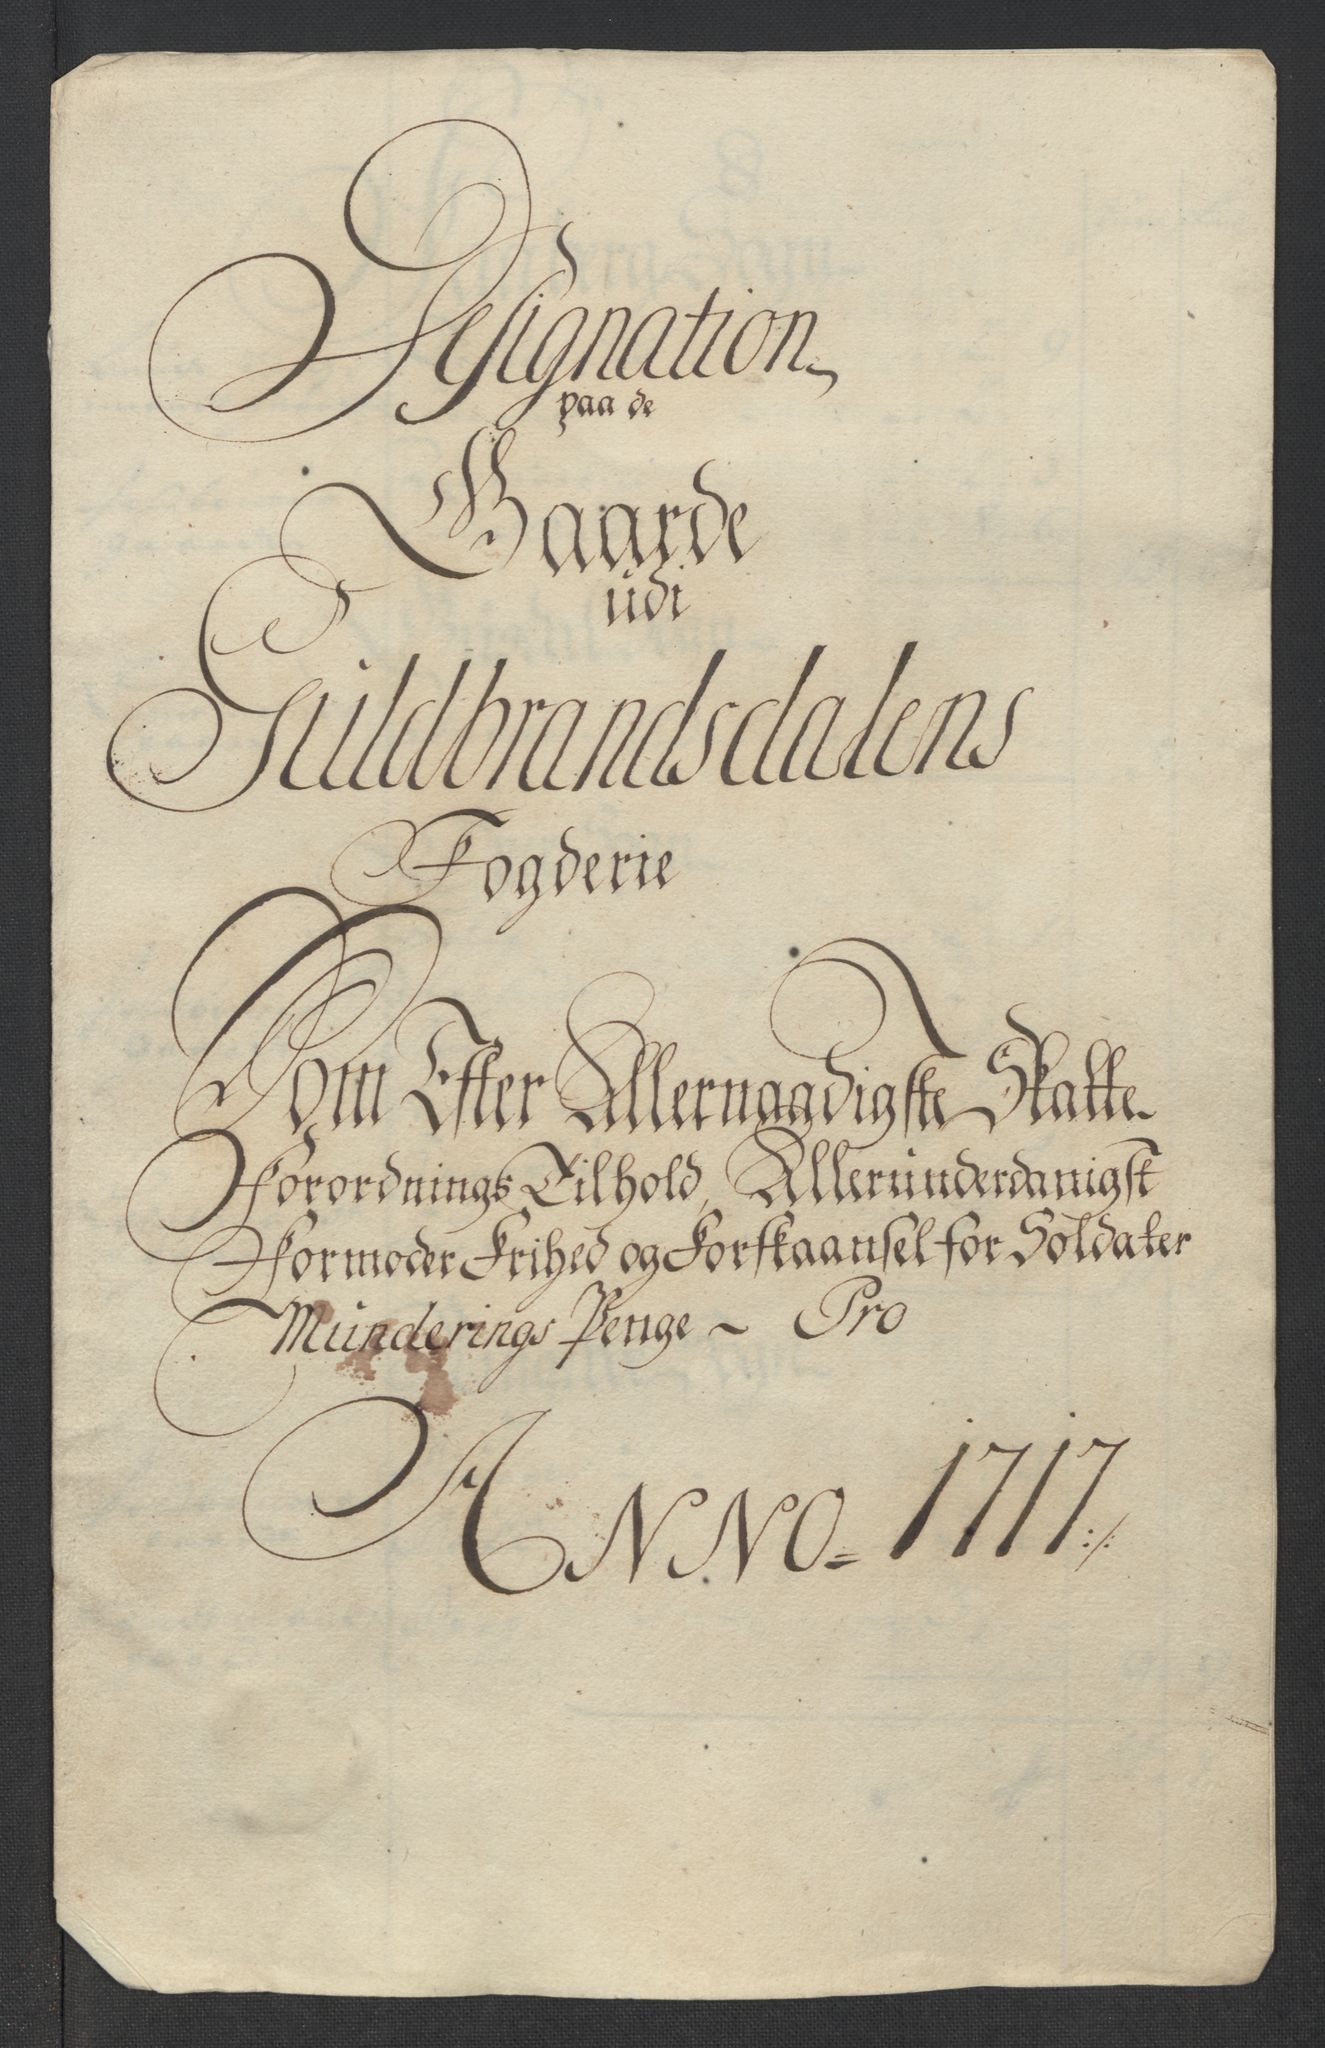 Designation
paa de
Gaarde
udi
Guldbrandsdalens
Fogderie
Som Efter Allernaadigste Skatte
Forordnings Tilhold, Allerunderdanigst
Formoder Frihed og Forskaansel for Soldater
Munderings Penge - Pro
ANNO = 1717 ./.